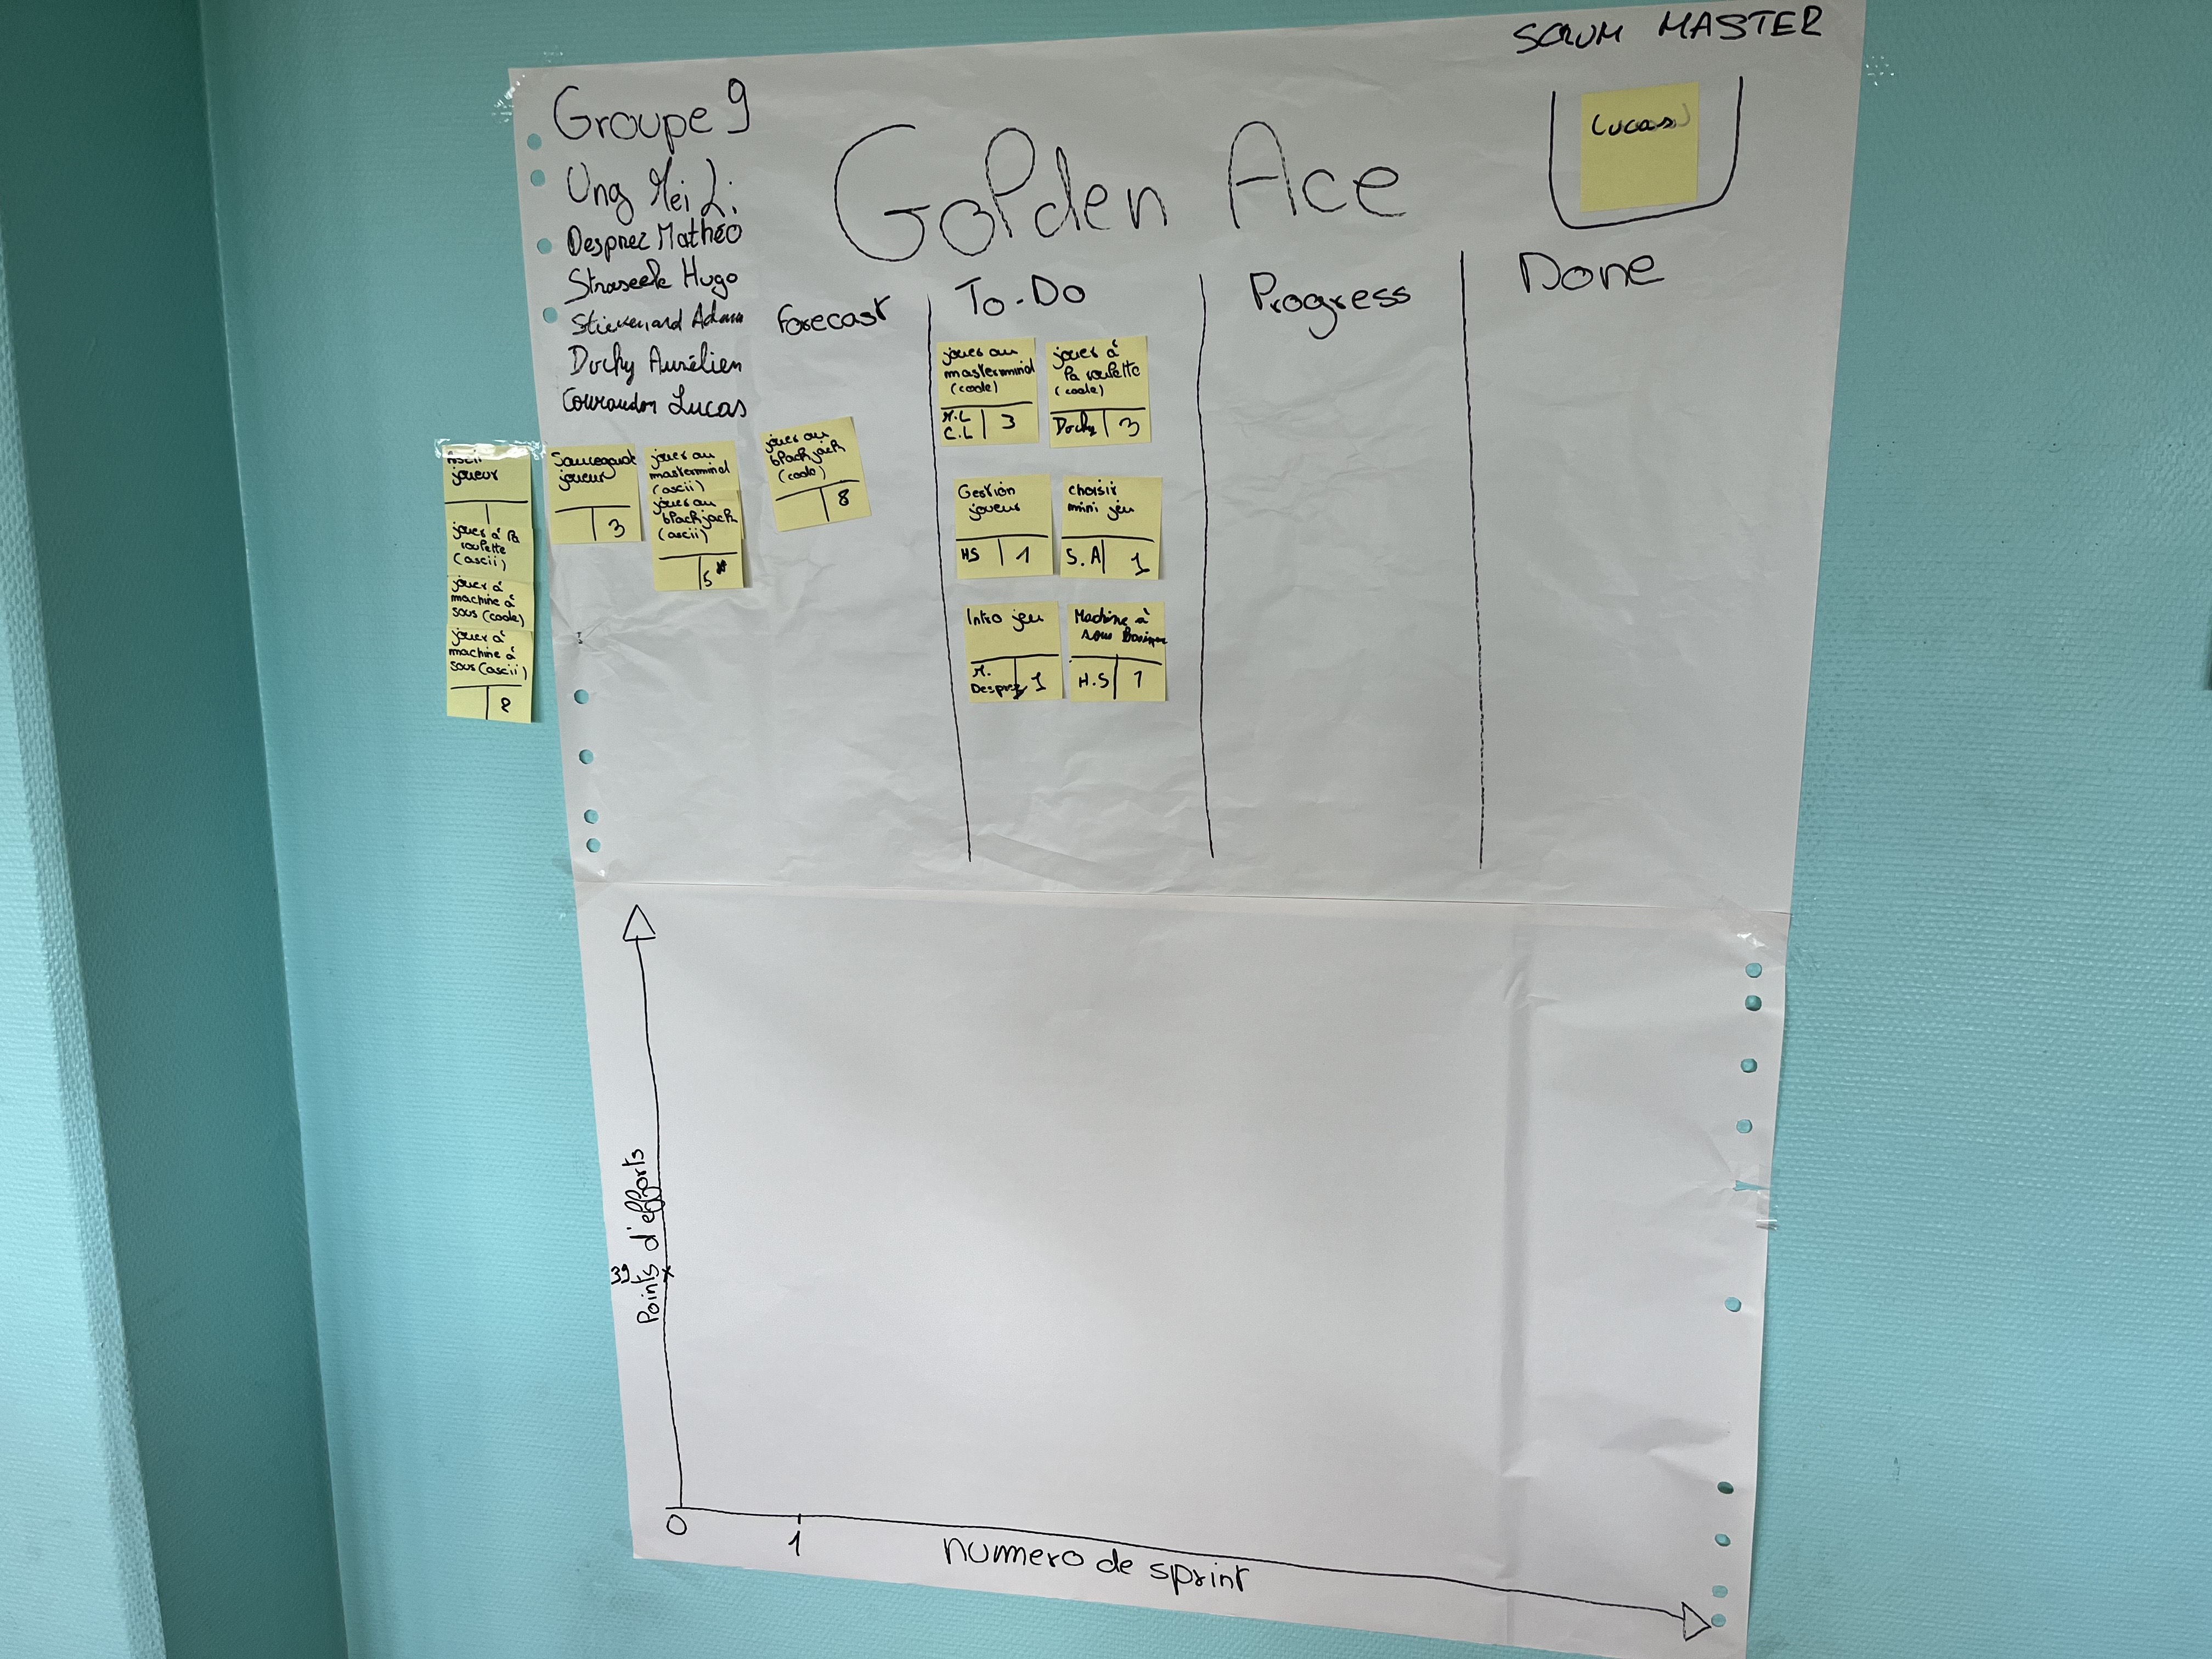 SCRUM MASTER
Lucas
Groupe 9
Ung Mei Li
Desprez Mathéo
Straseele Hugo
Stievenard Adam
Dochy Aurélien
Courandon Lucas
Golden Ace
Forecast
To-Do
Progress
Done
Ascii
joueur
jouer à la
roulette
(ascii)
jouer à
machine à
sous (code)
jouer à
machine à
sous (ascii)
8
Sauvegarde
joueur
3
jouer au
mastermind
(ascii)
jouer au
black jack
(ascii)
5
jouer au
black jack
(code)
8
jouer au
mastermind
(code)
M.L
C.L
3
jouer à
la roulette
(code)
Dochy
3
Gestion
joueur
HS
1
choisir
mini jeu
S.A
1
Intro jeu
M.
Desprez
1
Machine à
sous
H.S
1
Points d'efforts
39
0
1
numero de sprint